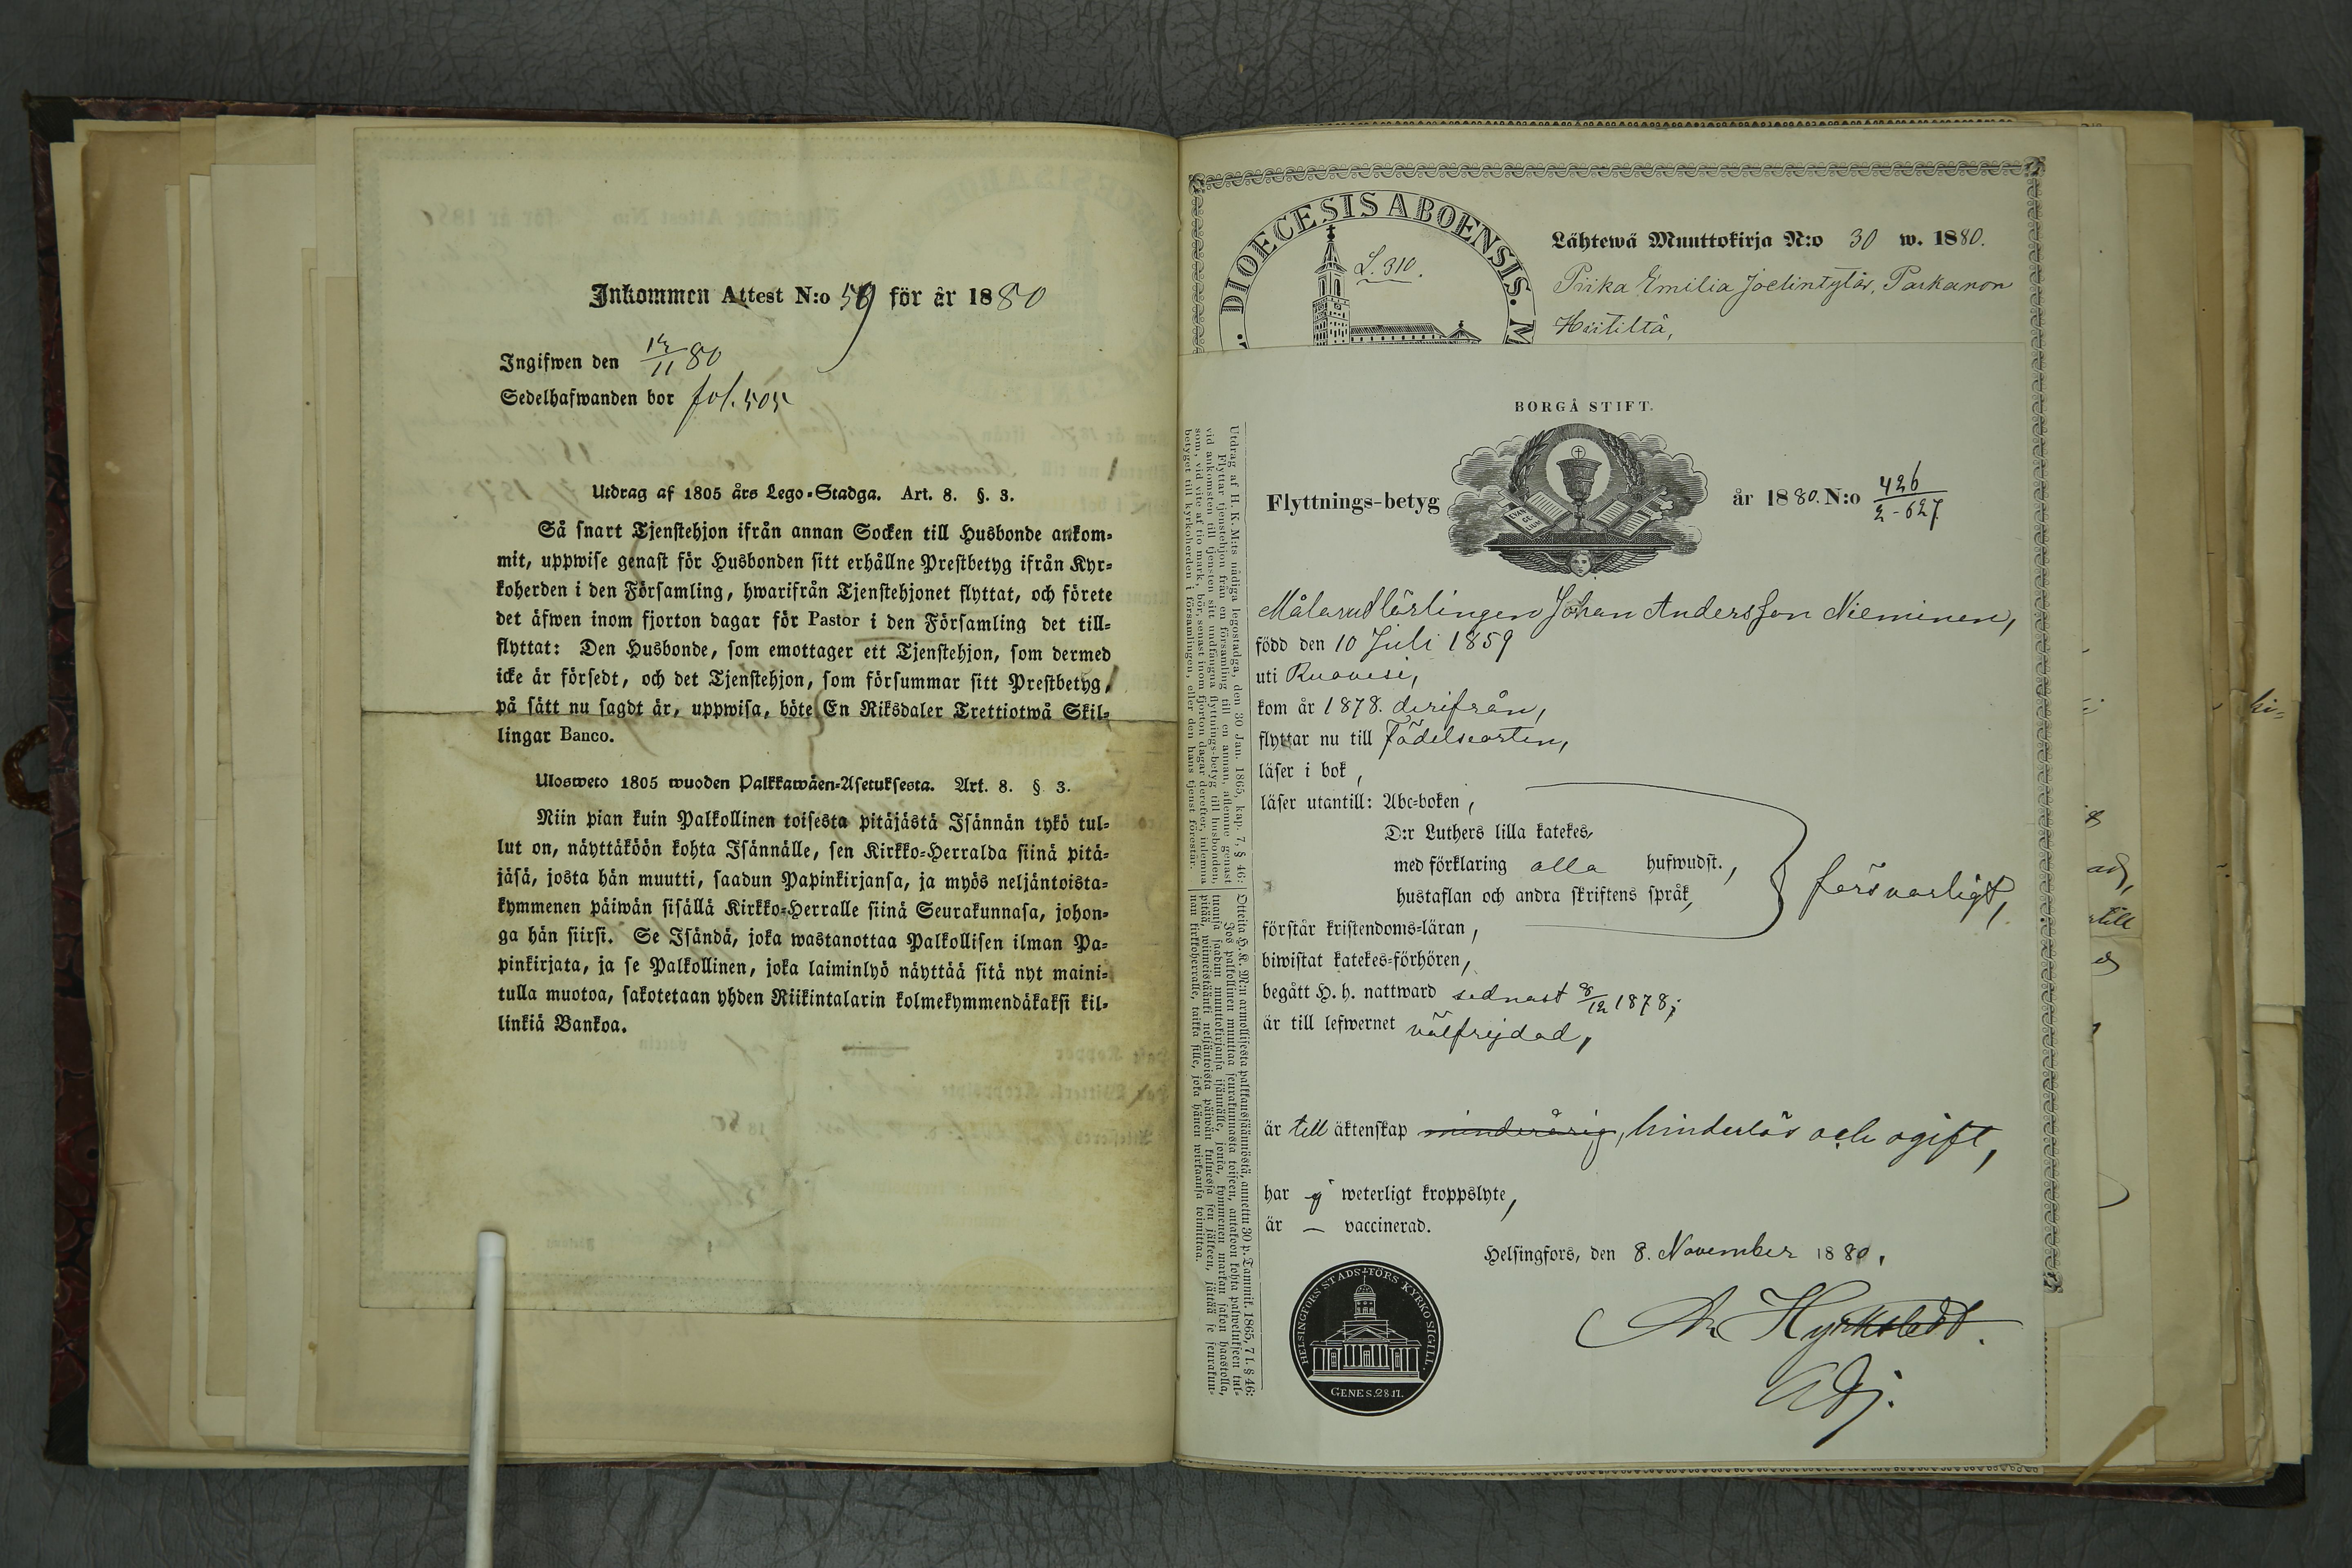 Inkommen Attest N:o 59 för år 1880
Ingifwen den 12/11 80
Sedelhafwanden bor fol. 505
Utdrag af 1805 års Lego-Stadga. Art. 8. §. 3.
Så snart Tjenstehjon ifrån annan Socken till Husbonde ankom-
mit, uppwise genast för Husbonden sitt erhållne Prestbetyg ifrån Kyr-
koherden i den Församling, hwarifrån Tjenstehjonet flyttat, och förete
det äfwen inom fjorton dagar för Pastor i den Församling det till-
flyttat: Den Husbonde, som emottager ett Tjenstehjon, som dermed
icke är försedt, och det Tjenstehjon, som försummar sitt Prestbetyg,
på sätt nu sagdt är, uppwisa, böte En Riksdaler Trettiotwå Skil-
lingar Banco.
Ulosweto 1805 wuoden Palkkawäen-Asetuksesta. Art. 8. § 3.
Niin pian kuin Palkollinen toisesta pitäjästä Isännän tykö tul-
lut on, näyttäköön kohta Isännälle, sen Kirkko-Herralda siinä pitä-
jäsä, josta hän muutti, saadun Papinkirjansa, ja myös neljäntoista-
kymmenen päiwän sisällä Kirkko-Herralle siinä Seurakunnasa, johon-
ga hän siirsi. Se Isändä, joka wastanottaa Palkollisen ilman Pa-
pinkirjata, ja se Palkollinen, joka laiminlyö näyttää sitä nyt maini-
tulla muotoa, sakotetaan yhden Riikintalarin kolmekymmendäkaksi kil-
linkiä Bankoa.
DIOECESIS ABOENSIS. M
L. 310.
Lähtewä Muuttokirja N:o 30 w. 1880.
Piika Emilia Joelintytär, Parkanon
BORGÅ STIFT.
Flyttnings-betyg år 1880. N:o 426/2-627
EVAN GE LIUM
Målarelärlingen Johan Andersson Nieminen,
född den 10 Juli 1859
uti Ruovesi,
kom år 1878. derifrån,
flyttar nu till Födelseorten,
läser i bok,
läser utantill: Abc-boken,
D:r Luthers lilla katekes,
med förklaring alla hufwudst.,
hustaflan och andra skriftens språk,
försvarligt,
förstår kristendoms-läran,
biwistat katekes-förhören,
begått H. h. nattward sednast 8/12 1878;
är till lefwernet välfrejdad,
är till äktenskap minderårig, hinderlös och ogift,
har ej weterligt kroppslyte,
är — vaccinerad.
Helsingfors, den 8. November 1880.
Adj.
HELSINGFORS STADS-FÖRS KYRKO SIGILL.
GENES. 28.17.
Utdrag af H. K. M:ts nådiga legostadga, den 30 Jan. 1865, kap. 7, § 46:
Flyttar tjenstehjon från en församling till en annan, aflemne genast
vid ankomsten till tjensten sitt undfångna flyttnings-betyg till husbonden,
som, vid vite af tio mark, bör senast inom fjorton dagar derefter, inlemna
betyget till kyrkoherden i församlingen, eller den hans tjenst förestår.